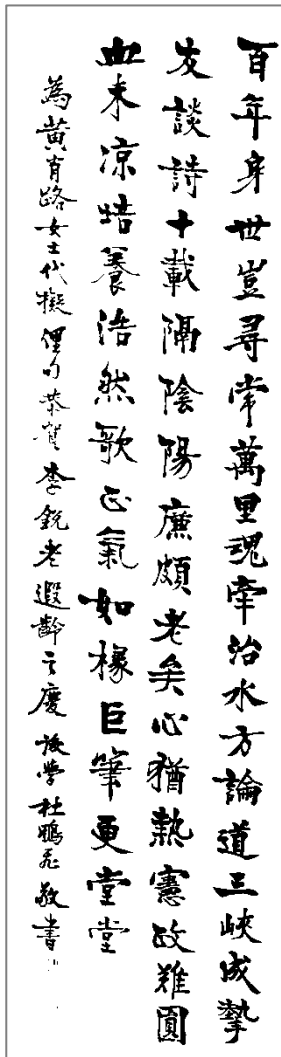 百年身世豈尋常萬里魂牽治水方論道三峽成摯
友談詩十載隔陰陽廉頗老矣心猶熱憲政難圓
血未凉喆養浩然歌正氣如椽巨筆更堂堂
為黃肖路女士代擬俚句恭賀李銳老遐齡之慶 後學杜鵬飛敬書